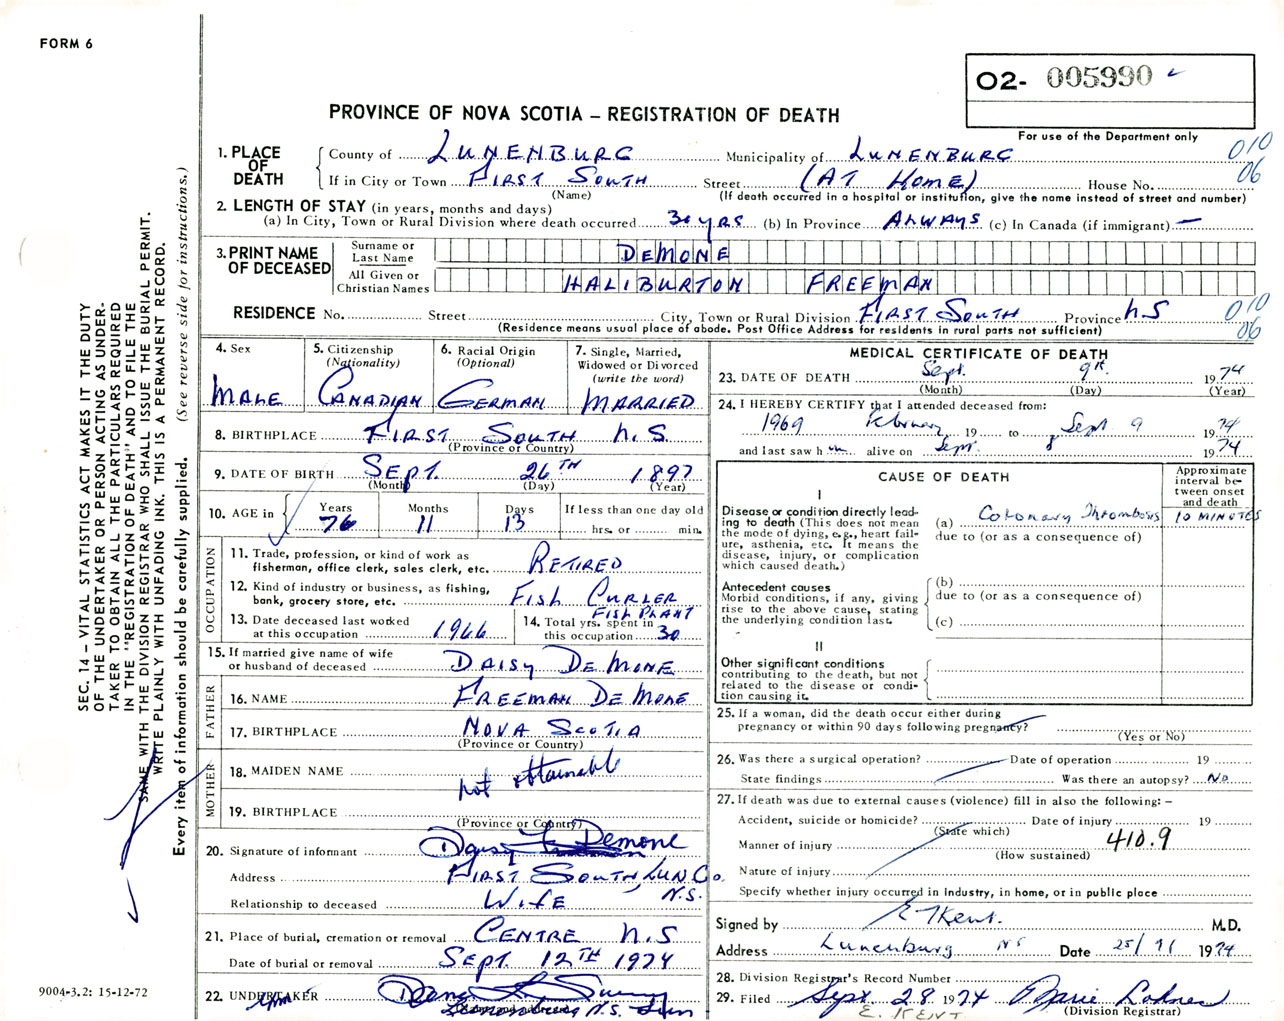 FORM 6
O2- 005990
PROVINCE OF NOVA SCOTIA – REGISTRATION OF DEATH
For use of the Department only
1. PLACE OF DEATH
County of LUNENBURG Municipality of LUNENBURG 010
If in City or Town FIRST SOUTH Street (AT HOME) House No. 06
(Name) (If death occurred in a hospital or institution, give the name instead of street and number)
2. LENGTH OF STAY (in years, months and days)
(a) In City, Town or Rural Division where death occurred 30 yRS (b) In Province ALWAYS (c) In Canada (if immigrant) —
3. PRINT NAME OF DECEASED
Surname or Last Name DEMONE
All Given or Christian Names HALIBURTON FREEMAN
RESIDENCE No. Street City, Town or Rural Division FIRST SOUTH Province N.S 010
(Residence means usual place of abode. Post Office Address for residents in rural parts not sufficient) 06
4. Sex
MALE
5. Citizenship
(Nationality)
CANADIAN
6. Racial Origin
(Optional)
GERMAN
7. Single, Married,
Widowed or Divorced
(write the word)
MARRIED
8. BIRTHPLACE FIRST SOUTH N.S
(Province or Country)
9. DATE OF BIRTH SEPT. 26TH 1897
(Month) (Day) (Year)
10. AGE in
Years Months Days If less than one day old
76 11 13 hrs. or min.
OCCUPATION
11. Trade, profession, or kind of work as
fisherman, office clerk, sales clerk, etc. RETIRED
12. Kind of industry or business, as fishing,
bank, grocery store, etc. FISH CURLER
FISH PLANT
13. Date deceased last worked
at this occupation 1966
14. Total yrs. spent in
this occupation 30
15. If married give name of wife
or husband of deceased DAISY DEMONE
FATHER
16. NAME FREEMAN DEMONE
17. BIRTHPLACE NOVA SCOTIA
(Province or Country)
MOTHER
18. MAIDEN NAME not obtainable
19. BIRTHPLACE
(Province or Country)
20. Signature of informant Daisy Demone
Address FIRST SOUTH, LUN Co.
N.S.
Relationship to deceased WIFE
21. Place of burial, cremation or removal CENTRE N.S
Date of burial or removal SEPT. 12TH 1974
22. UNDERTAKER
Lunenburg N.S.
MEDICAL CERTIFICATE OF DEATH
23. DATE OF DEATH Sept. 9th. 1974
(Month) (Day) (Year)
24. I HEREBY CERTIFY that I attended deceased from:
1969 February 19 to Sept 9 1974
and last saw h im alive on Sept. 8 1974
CAUSE OF DEATH
Approximate
interval be-
tween onset
and death
I
Disease or condition directly lead-
ing to death (This does not mean
the mode of dying, e.g., heart fail-
ure, asthenia, etc. It means the
disease, injury, or complication
which caused death.)
(a) Coronary Thrombosis 10 MINUTES
due to (or as a consequence of)
Antecedent causes
Morbid conditions, if any, giving
rise to the above cause, stating
the underlying condition last.
(b)
due to (or as a consequence of)
(c)
II
Other significant conditions
contributing to the death, but not
related to the disease or condi-
tion causing it.
25. If a woman, did the death occur either during
pregnancy or within 90 days following pregnancy?
(Yes or No)
26. Was there a surgical operation? Date of operation 19
State findings Was there an autopsy? No.
27. If death was due to external causes (violence) fill in also the following: –
Accident, suicide or homicide? Date of injury 19
(State which)
Manner of injury 410.9
(How sustained)
Nature of injury
Specify whether injury occurred in industry, in home, or in public place
Signed by E Kent. M.D.
Address Lunenburg NS Date 25/ 1974
28. Division Registrar's Record Number
29. Filed Sept. 28 1974 Marie Lohnes
E. KENT (Division Registrar)
SEC. 14 – VITAL STATISTICS ACT MAKES IT THE DUTY
OF THE UNDERTAKER OR PERSON ACTING AS UNDER-
TAKER TO OBTAIN ALL THE PARTICULARS REQUIRED
IN THE "REGISTRATION OF DEATH" AND TO FILE THE
SAME WITH THE DIVISION REGISTRAR WHO SHALL ISSUE THE BURIAL PERMIT.
WRITE PLAINLY WITH UNFADING INK. THIS IS A PERMANENT RECORD.
Every item of information should be carefully supplied. (See reverse side for instructions.)
9004-3.2: 15-12-72